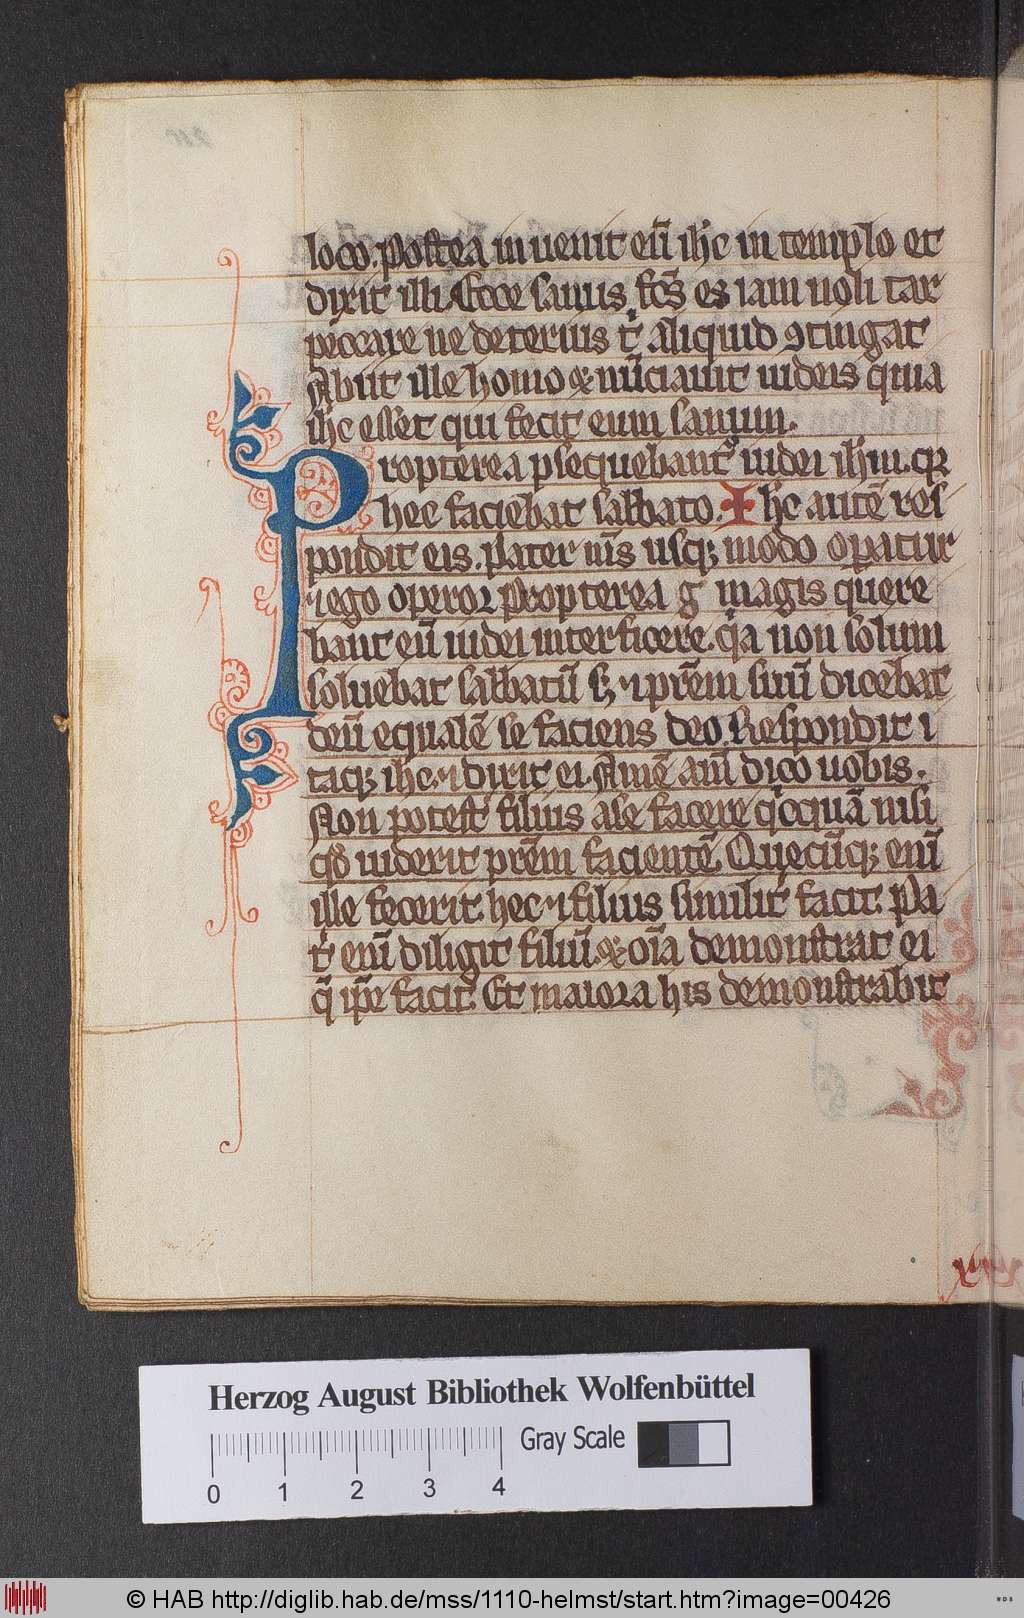 loco. Postea inuenit eū ihc in templo et
dixit illi. Ecce sanus fcs es iam noli
peccare ne deterius t aliquid ꝯtingat
Abiit ille homo ⁊ nūciauit iudeis quia
ihc esset qui fecit eum sanum.
Propterea psequebantᷣ iudei ihm. qꝛ
hec faciebat sabbato. Ihc autē res
pondit eis. Pater ms usqꝫ modo opatur
⁊ ego operor Propterea gͦ magis quere
bant eū iudei interficere. qͥa non solum
soluebat sabbatū sꝫ ⁊ prēm suū dicebat
deū equalē se faciens deo Respondit i
taqꝫ ihc. ⁊ dixit ei. Amē am̄ dico uobis.
Non potest filius a se facere qͥcquā nisi
qd̄ uiderit prēm facientē. Quecūqꝫ enī
ille fecerit. hec ⁊ filius similit̓ facit. Pa
t̓ enī diligit filiū. ⁊ oīa demonstrat ei
q̄ ip̄e facit. Et maiora his demonstrabit
Herzog August Bibliothek Wolfenbüttel
Gray Scale
0 1 2 3 4
© HAB http://diglib.hab.de/mss/1110-helmst/start.htm?image=00426